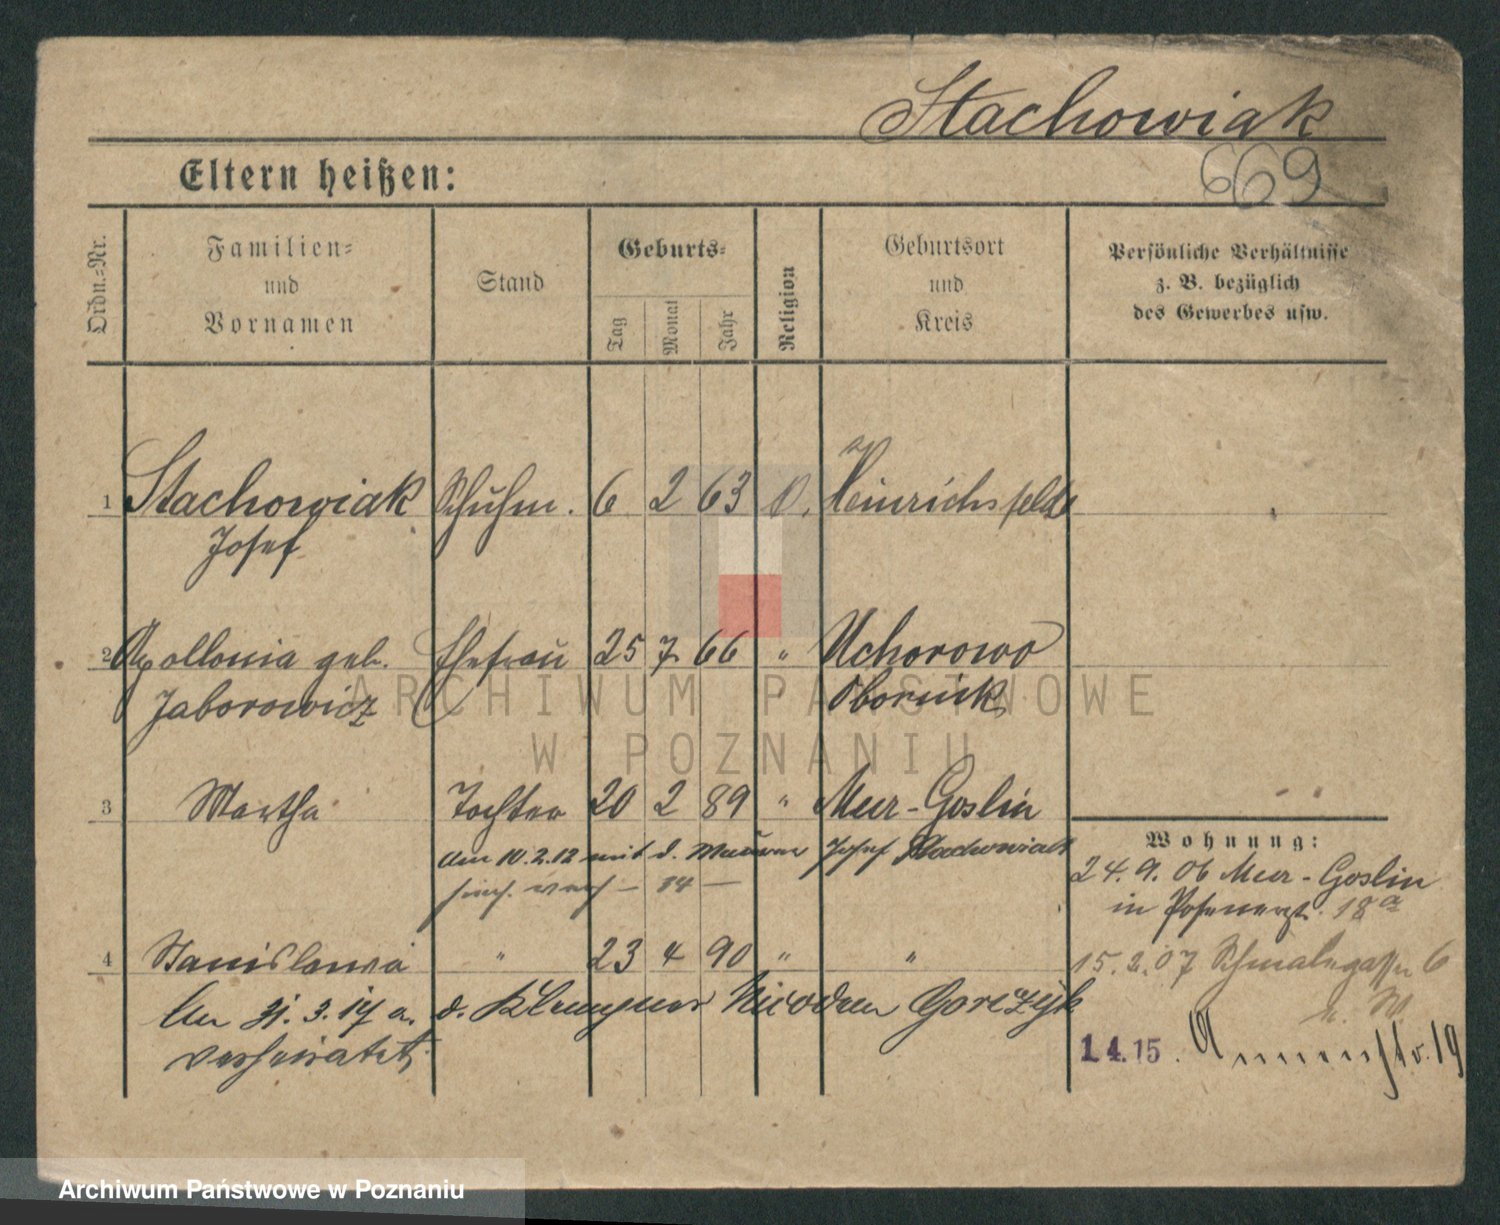 Stachowiak
669
Eltern heißen:
Ordn.-Nr.
Familien-
und
Vornamen
Stand
Geburts-
Tag
Monat
Jahr
Religion
Geburtsort
und
Kreis
Persönliche Verhältnisse
z. B. bezüglich
des Gewerbes usw.
1 Stachowiak Schuhm. 6 2 63 Heinrichsfelde
Josef
2 Apollonia geb. Ehefrau 25 7 66 " Uchorowo
Jaborowicz Obornik
3 Martha Tochter 20 2 89 " Mur-Goslin
am 10.2.12 mit d. Maurer Josef Stachowiak
verh. — 14 —
Wohnung:
24. 9. 06 Mur-Goslin
in 18a
4 Stanislawa " 23 4 90 " "
15. 2. 07 Schmalegasse 6
b. W
Am 31. 3. 14 a. d. Klempner Nicodem Gorczyk
verheiratet.
1.4.15. Annenstr. 19
ARCHIWUM PAŃSTWOWE
W POZNANIU
Archiwum Państwowe w Poznaniu